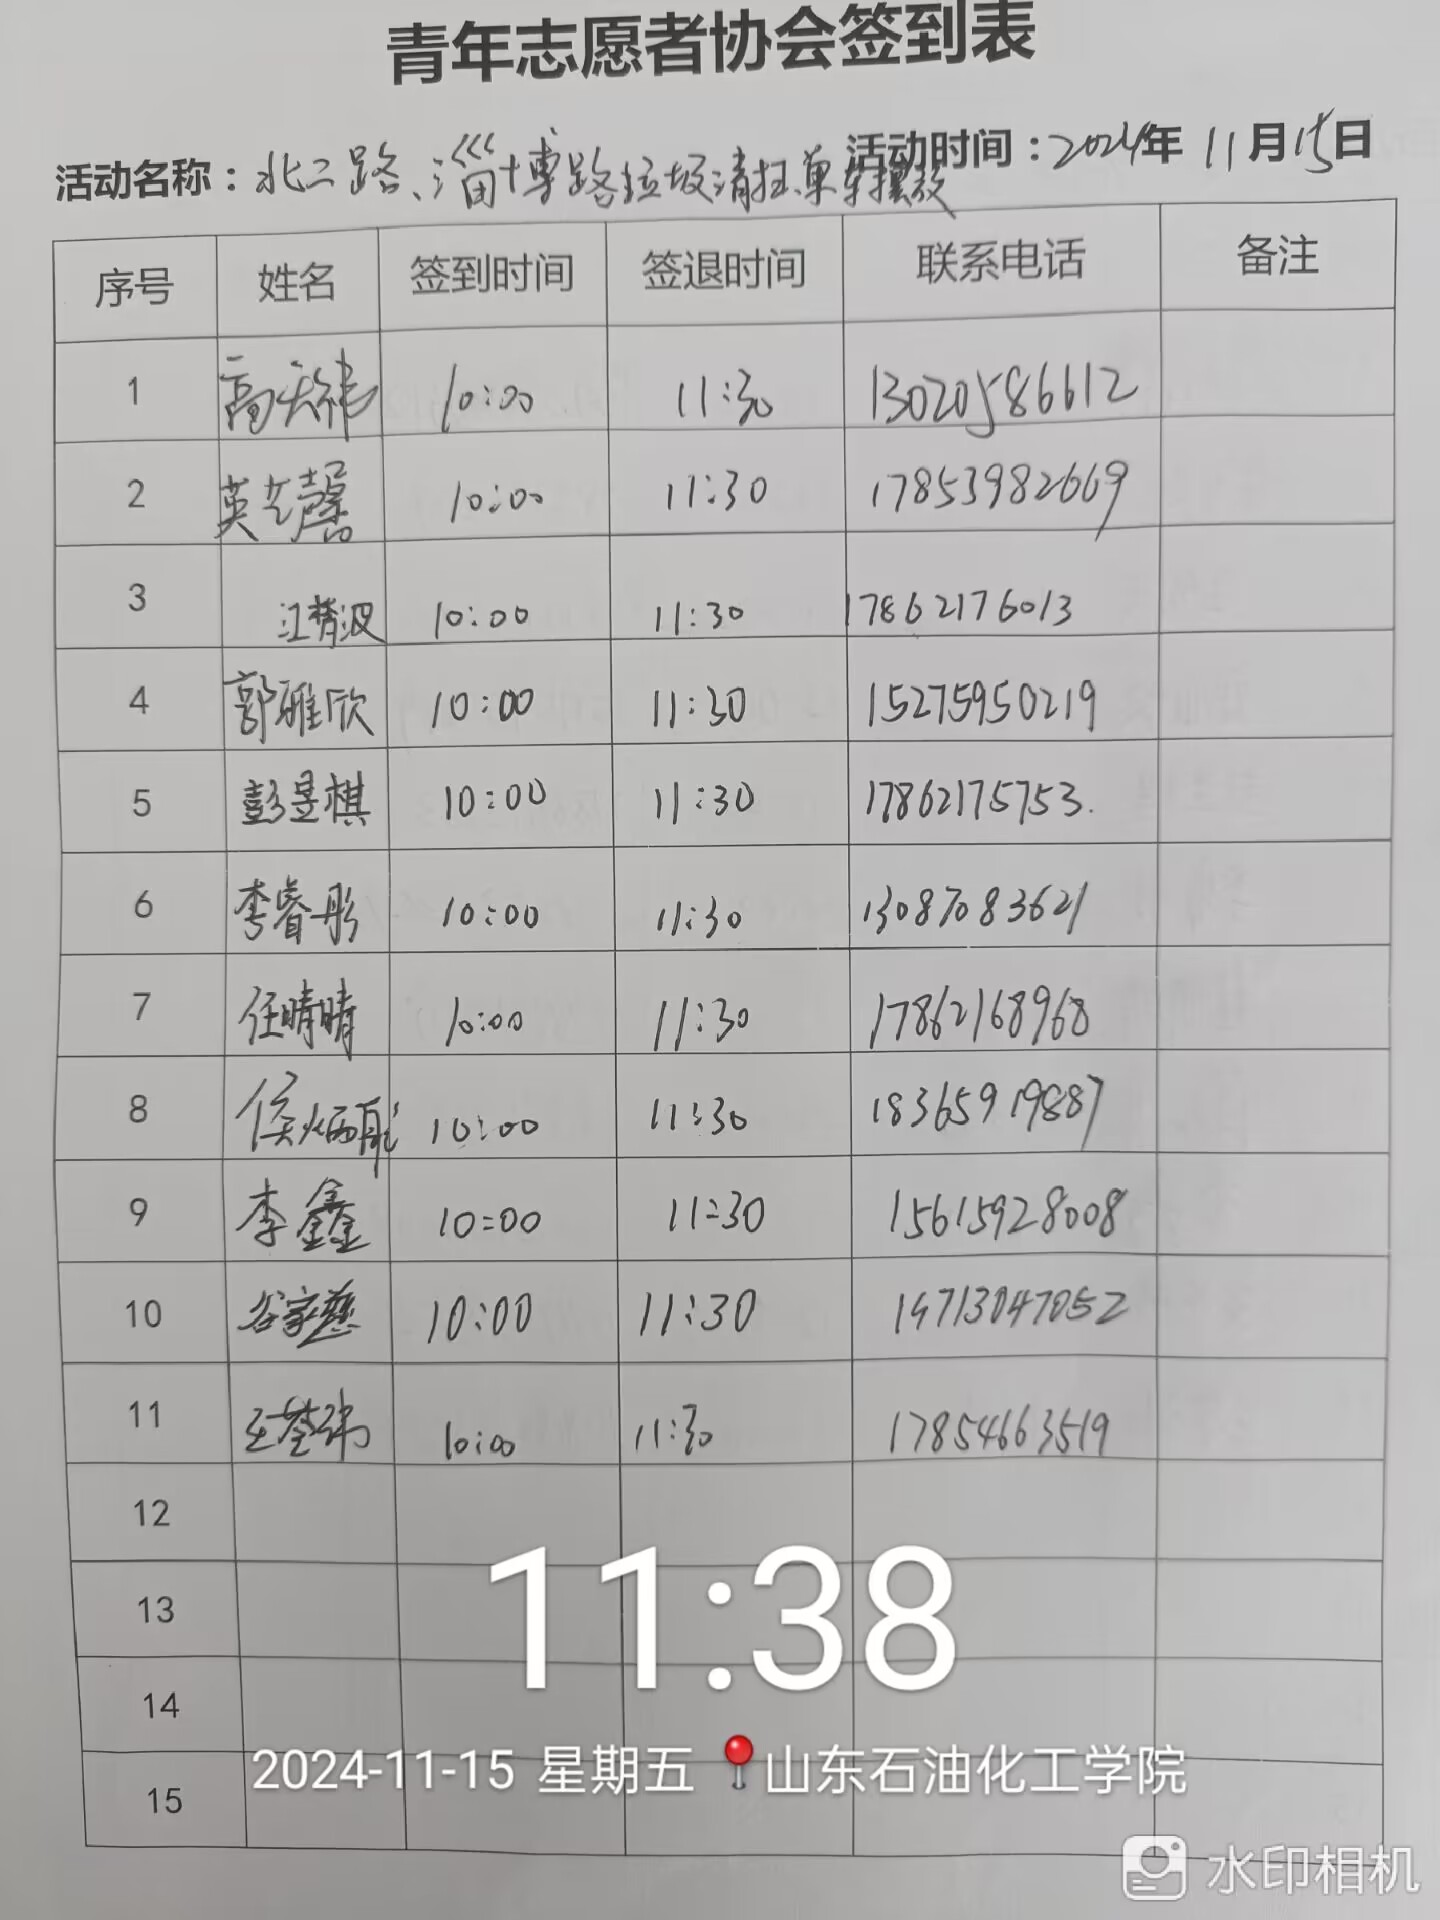 青年志愿者协会签到表
活动名称：北二路、淄博路垃圾清扫单车摆放 活动时间：2024年 11月15日
序号 姓名 签到时间 签退时间 联系电话 备注
1 高天祎 10:00 11:30 13020586612
2 英芝馨 10:00 11:30 17853982669
3 江梦波 10:00 11:30 17862176013
4 郭雅欣 10:00 11:30 15275950219
5 彭昱棋 10:00 11:30 17862175753.
6 李睿彤 10:00 11:30 13087083621
7 任晴晴 10:00 11:30 17862168968
8 侯炳彤 10:00 11:30 18365919887
9 李鑫 10:00 11:30 15615928008
10 谷家慈 10:00 11:30 19713047052
11 10:00 11:30 17854663519
12
13
14
15
11:38
2024-11-15 星期五 山东石油化工学院
水印相机